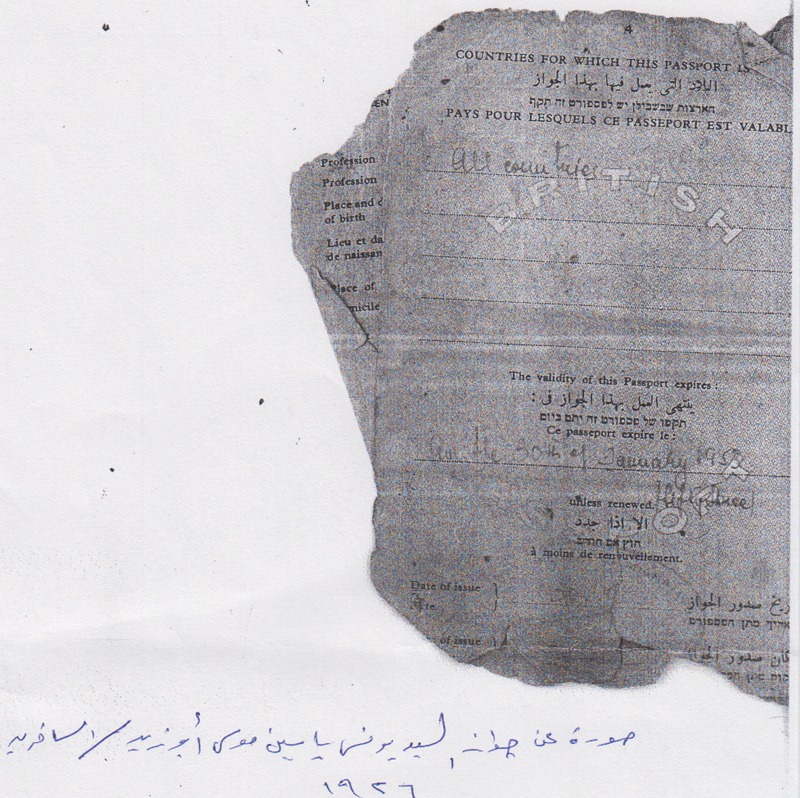 4
COUNTRIES FOR WHICH THIS PASSPORT IS
البلاد التي يعمل فيها بهذا الجواز
הארצות שבשבילן יש לפספורט זה תקף
PAYS POUR LESQUELS CE PASSEPORT EST VALABL
All countries
BRITISH
EN
Profession
Profession
Place and d
of birth
Lieu et da
de naissan
lace of
micile
The validity of this Passport expires:
ينتهي العمل بهذا الجواز في:
תקפו של פספורט זה יתם ביום
Ce passeport expire le:
on the 30th of January
unless renewed.
الا اذا جدد
חוץ אם חודש
à moins de renouvellement.
Date of issue
تاريخ صدور الجواز
תאריך מתן הפספורט
of issue
كان صدور الجواز
صورة عن جواز السيد يونس ياسين موسى أبو زيد / السافرية
١٩٢٦